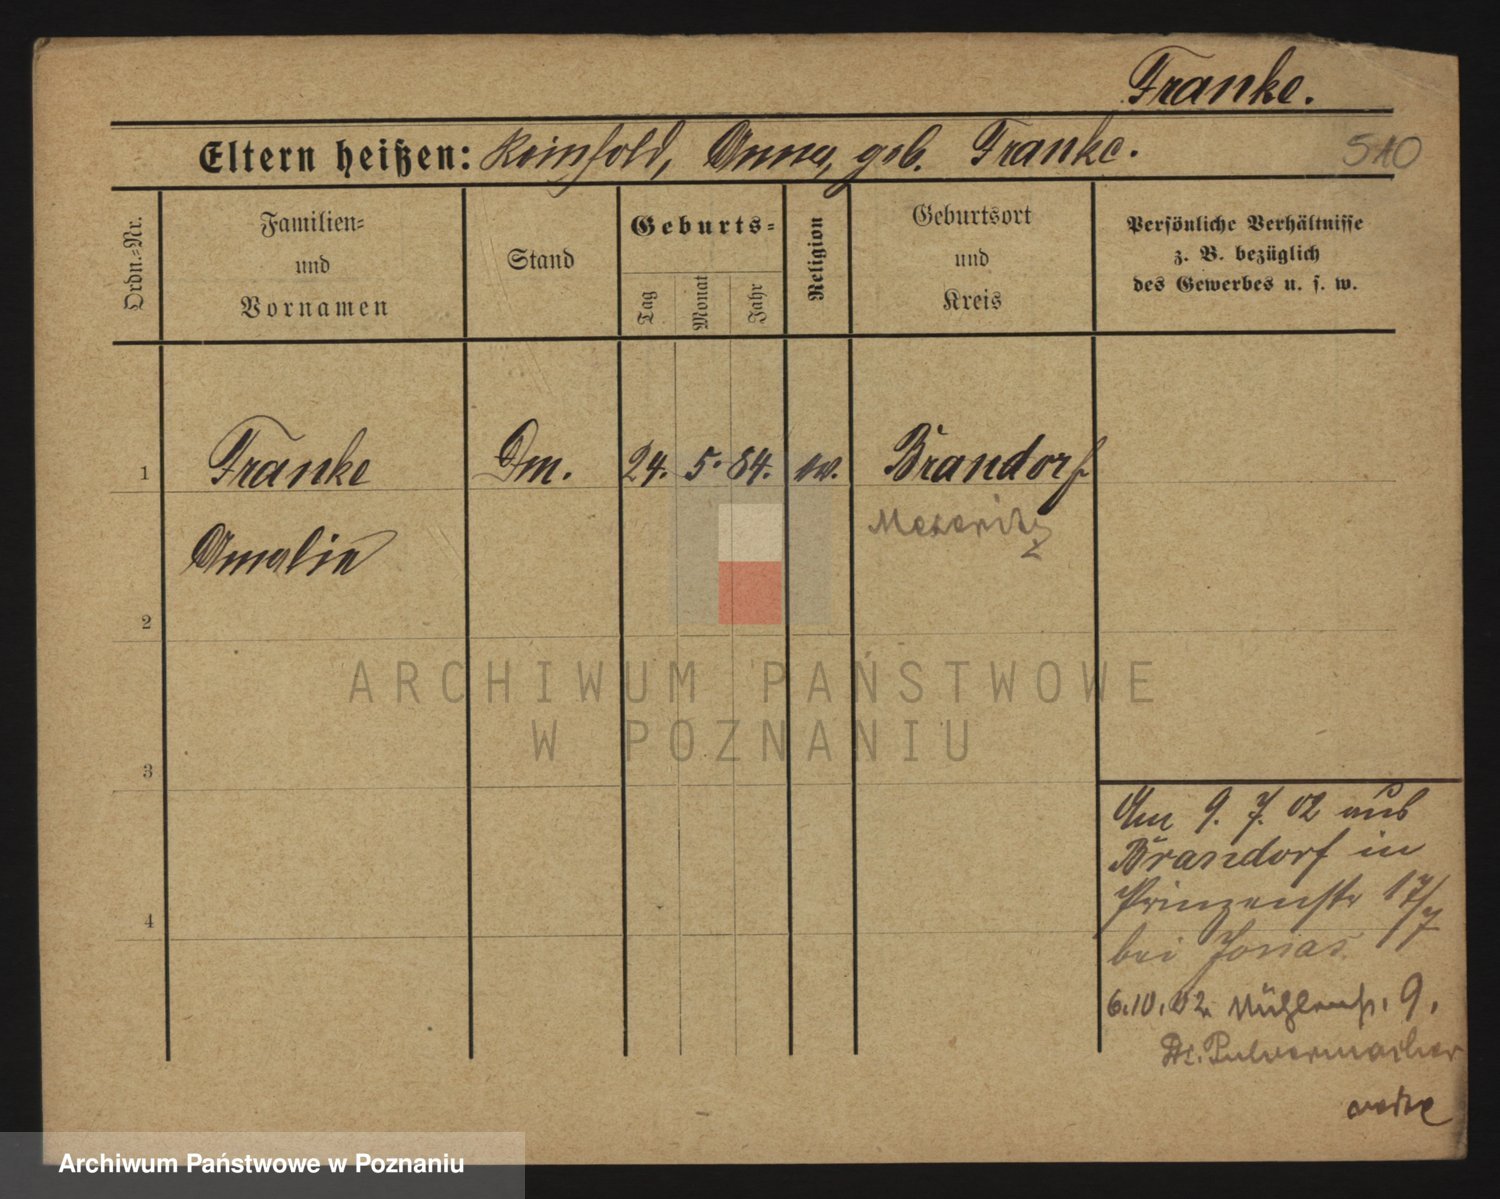 Franke.
Eltern heißen: Reinhold, Anna, geb. Franke.
510
Ordn.-Nr.
Familien-
und
Vornamen
Stand
Geburts-
Tag
Monat
Jahr
Religion
Geburtsort
und
Kreis
Persönliche Verhältnisse
z. B. bezüglich
des Gewerbes u. s. w.
1 Franke Dm. 24. 5. 84. ev. Brandorf
Meseritz
Amalie
2
3
4
Am 9. 7. 02 aus
Brandorf in
Prinzenstr 17/7
bei Jonas
6.10.02 Mühlenstr. 9.
Dr. Pulvermacher
ARCHIWUM PAŃSTWOWE
W POZNANIU
Archiwum Państwowe w Poznaniu